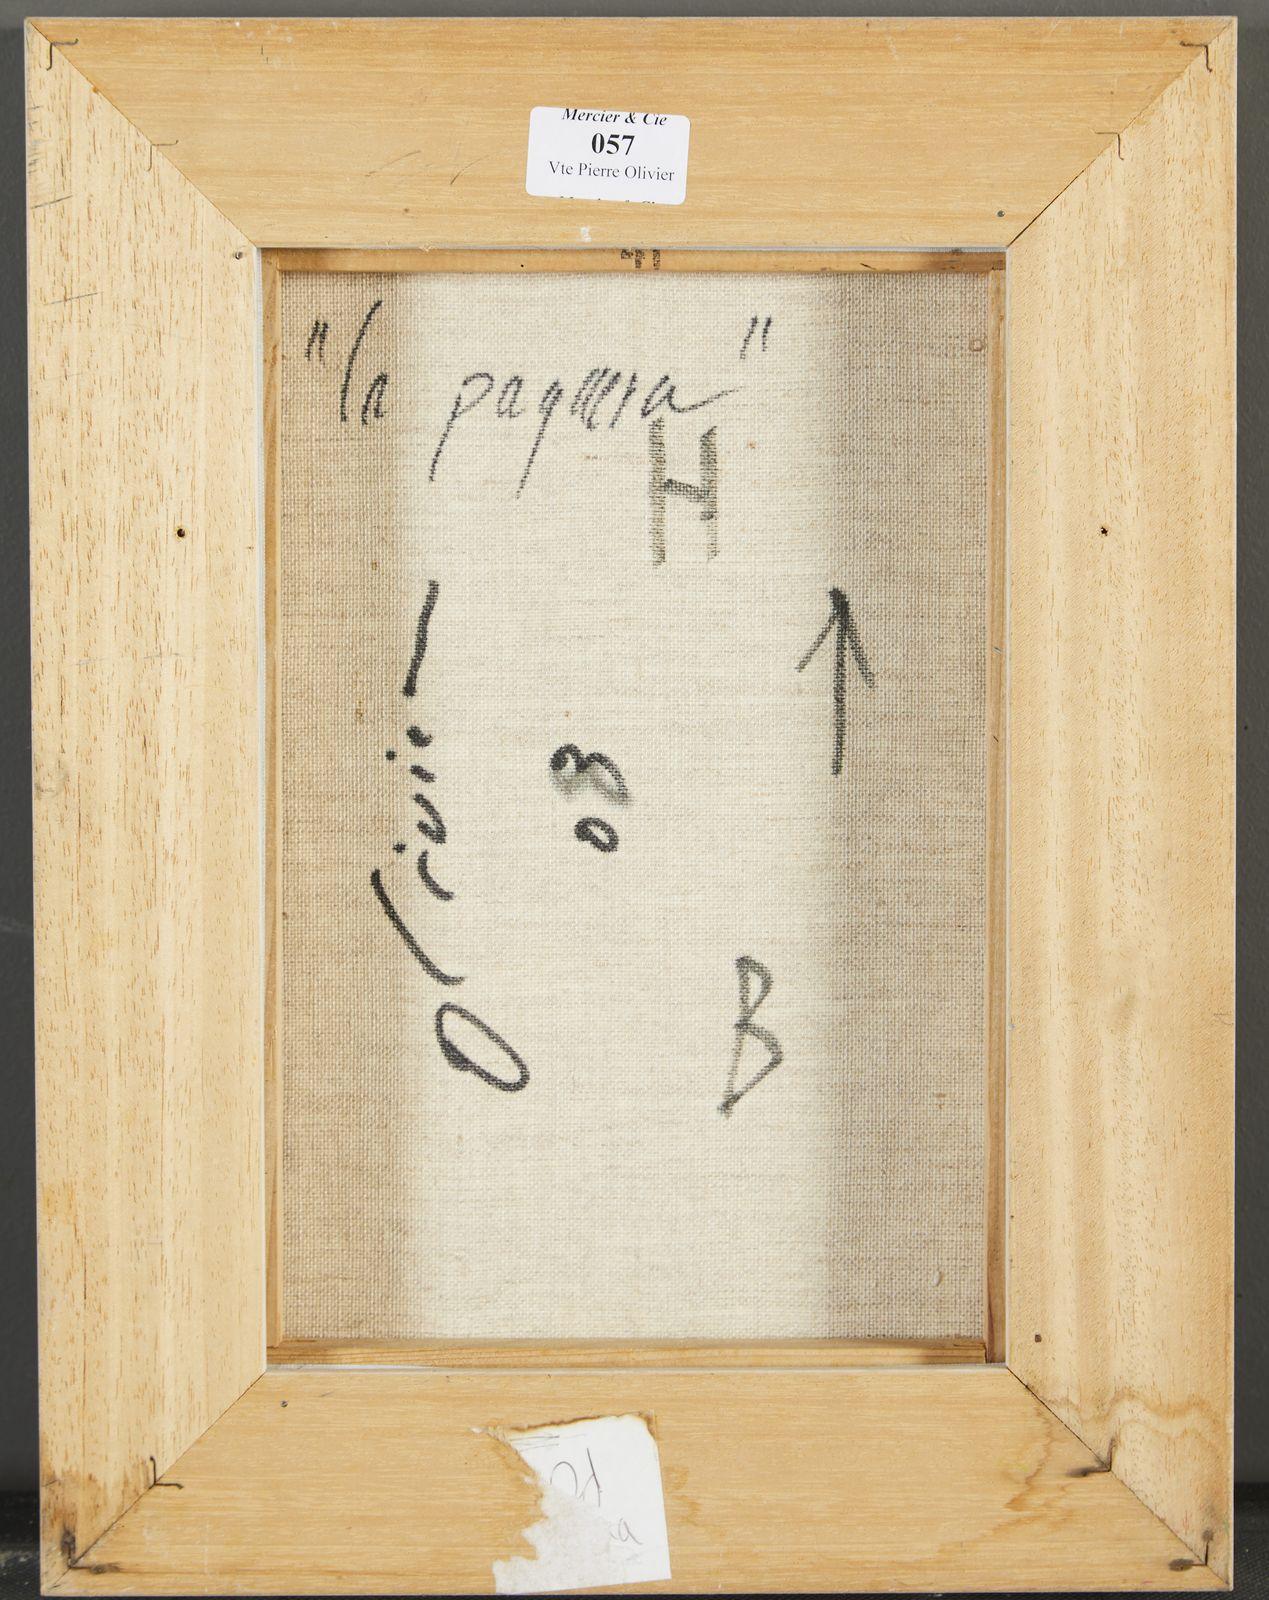 Mercier & Cie
057
Vte Pierre Olivier
"la paquera"
H
Olivier
03
B